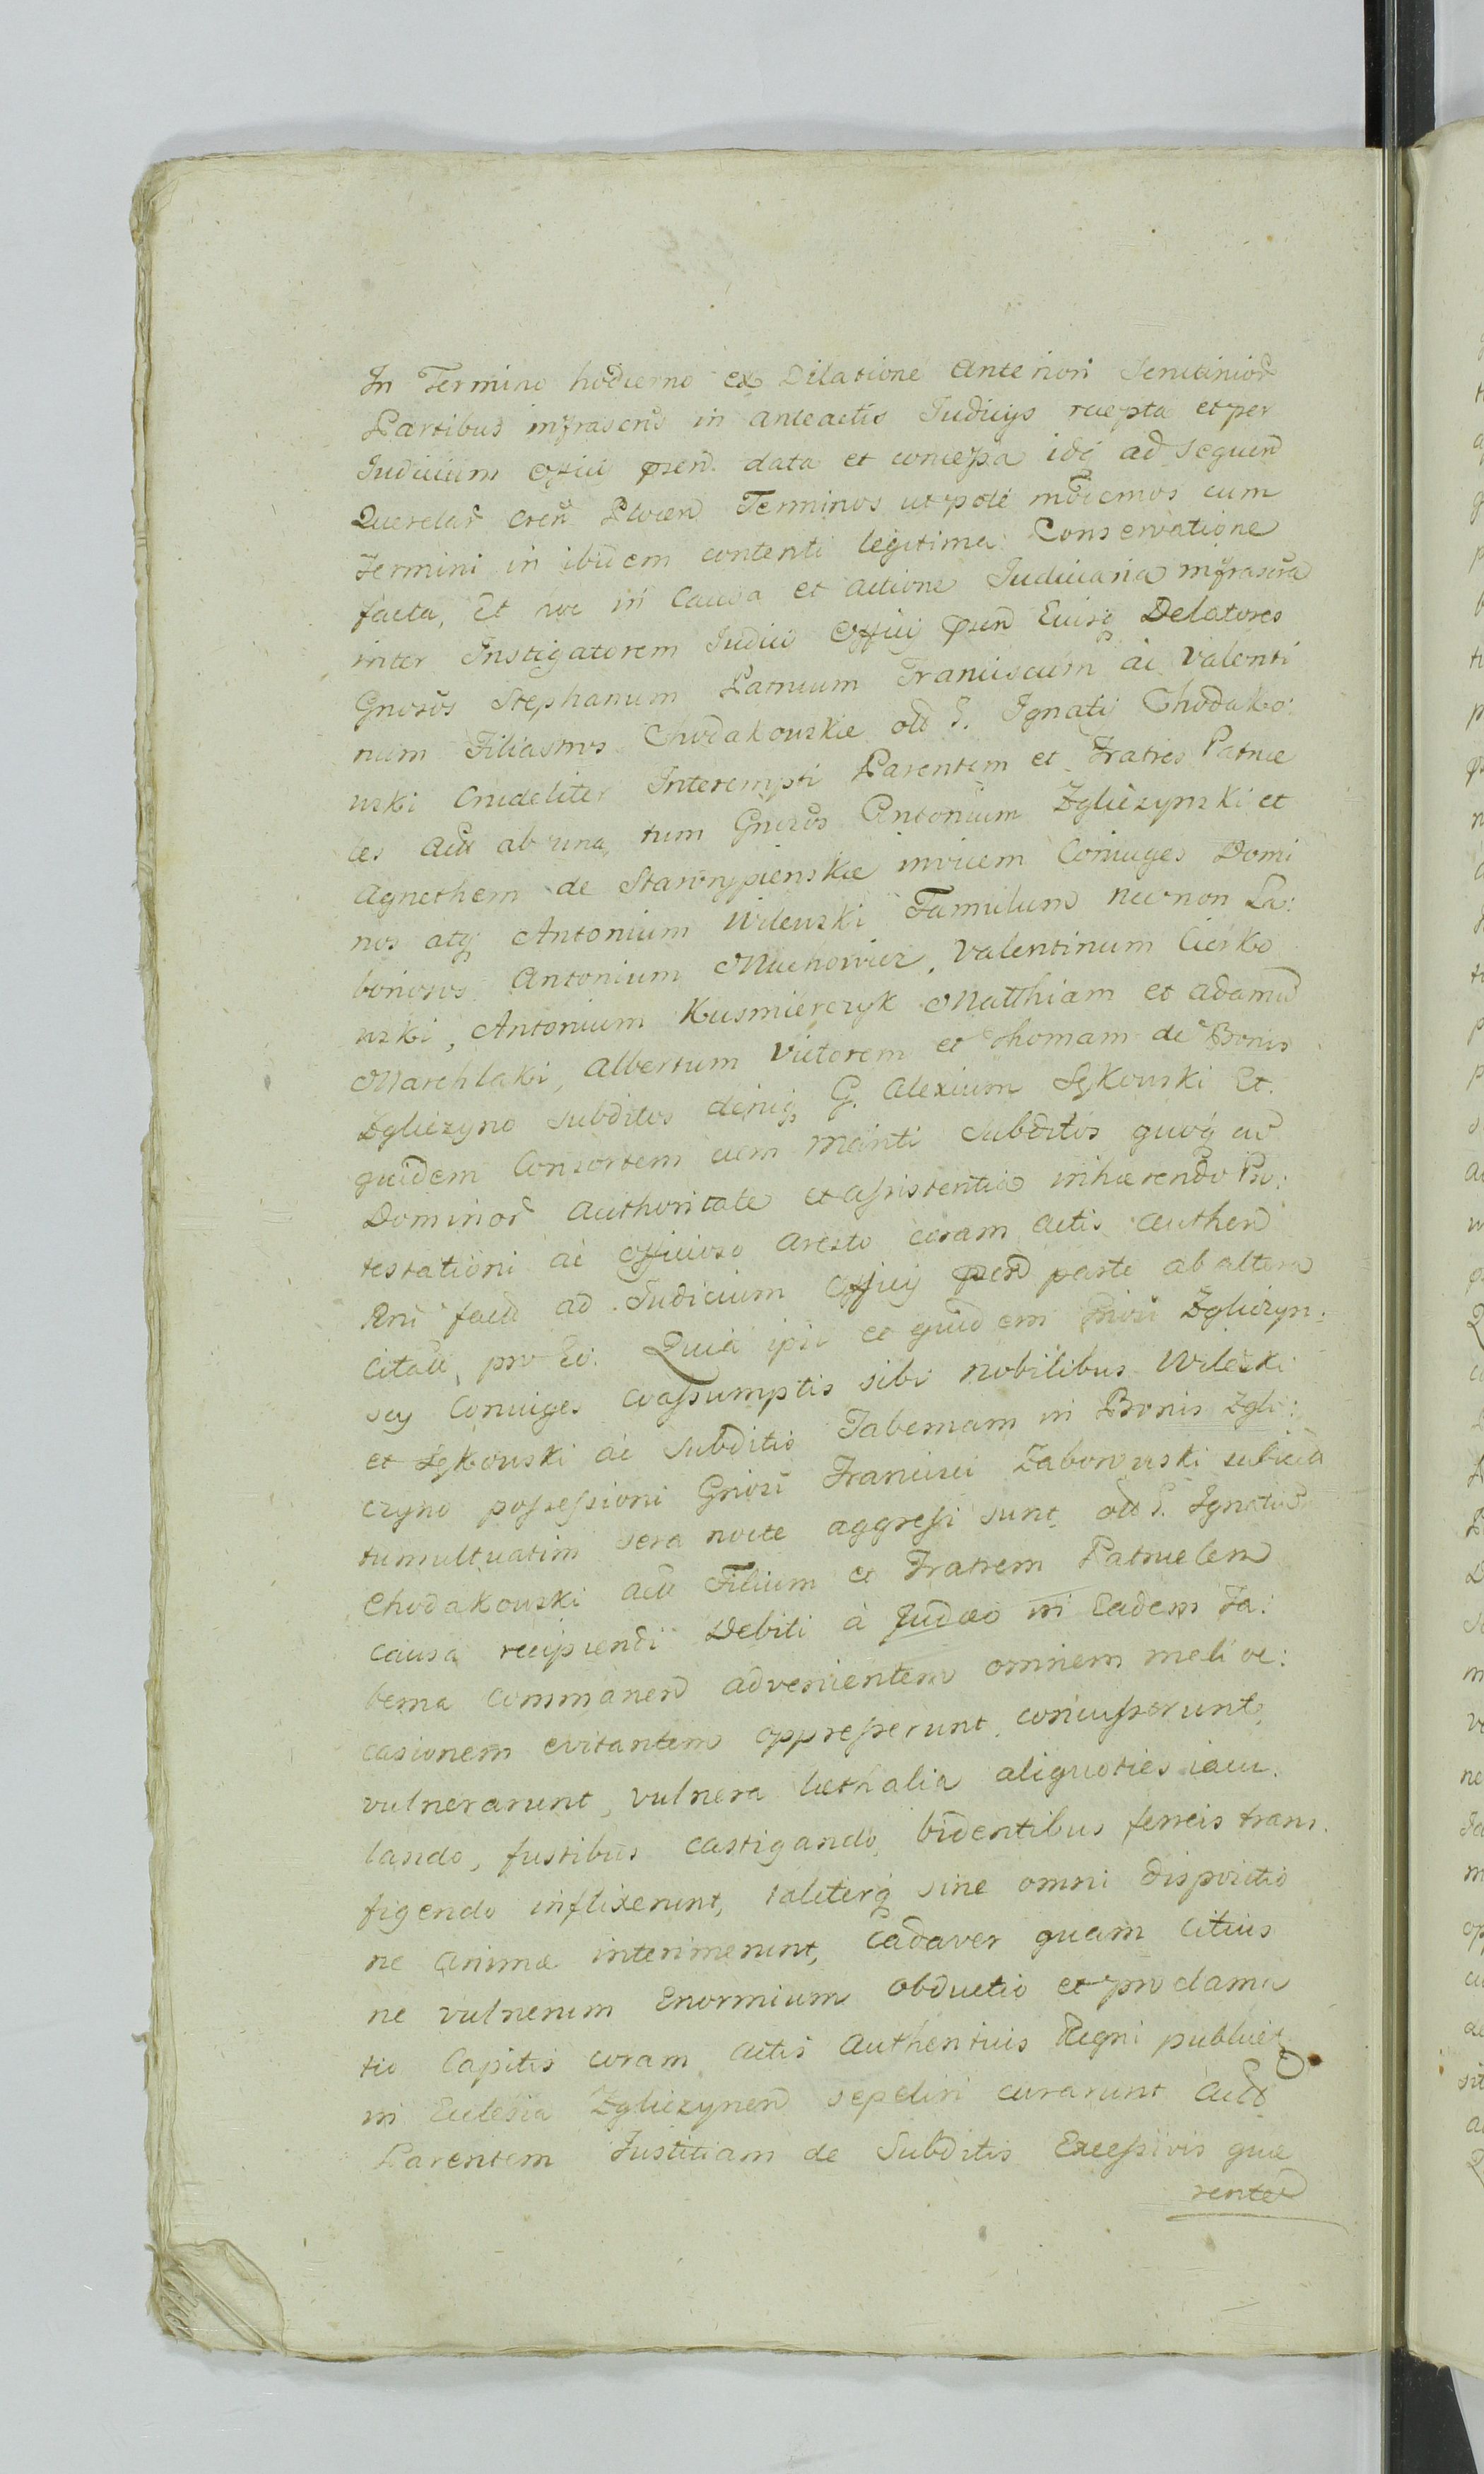 In Termino hodierno ex Dilatione Anteriori Scrutinior
Partibus infrascris in anteactis Judicijs recepta et per
Judicium Officii prsen. data et concessa idq ad Sequen
Querelar cren Plocen Terminos utpote modiernos cum
Termini in ibidem contenti legitima Conservatione
facta, Et hoc in Causa et Actione Judiciaria infrascra
inter Instigatorem Judicii Officij prsen Eiusq Delatores
Gnosos Stephanum Patruum Franciscum ac Valenti
num Filiastros Chodakowskie olt G. Ignatij Chodako:
wski Crudeliter Interempti Parentem et Fratres Patrue
les Act ab una, tum Gnosos Antonium Zgliczynski et
Agnethem de Starorypienskie invicem Coniuges Domi
nos atq Antonium Wilewski Famulum nec non La:
boriosos Antonium Muchowicz, Valentinum Ciesko
wski, Antonium Kusmierczyk Matthiam et Adamum
Marchlaki, Albertum Victorem et Thomam de Bonis
Zgliczyno Subditos deniq G. Alexium Sykowski Et
quidem Consortem uem Meinti Subditos quoq cu
Dominor Authoritate et assistentia inhærendo Pro:
testationi ac Officioso Aresto coram Actis Authen
Rni fact ad Judicium Officij prsen parte ab altera
Citatt, pro Eo. Quia ipsi et quidem Gnosi Zgliczyn:
scy Coniuges Coassumptis sibi Nobilibus Wileski
et Sykowski ac Subditis Tabernam in Bonis Zgli:
czyno possessioni Gnosi Francisci Zaborowski subiecta
tumultuatim sera nocte aggressi sunt olt G. Ignatium
Chodakowski Act Filium et Fratrem Patruelem
causa recipiendi Debiti à Judæo in Eadem Ta:
berna Commanen advenientem omnem meli oc:
casionem evitantem oppresserunt, concusserunt,
vulnerarunt, vulnera læthalia aliquoties iacu:
lando, fustibus castigando, bidentibus ferreis trans:
figendo inflixerunt, taliterq sine omni dispositio
ne Animæ interimerunt, Cadaver quam citius
ne vulnerum Enormium obductio et proclama
tio Capitis coram Actis Authenticis Regni publicet
in Ecclesia Zgliczynen sepeliri curarunt Act
Parentem Justitiam de Subditis Excessivis quæ
rentem